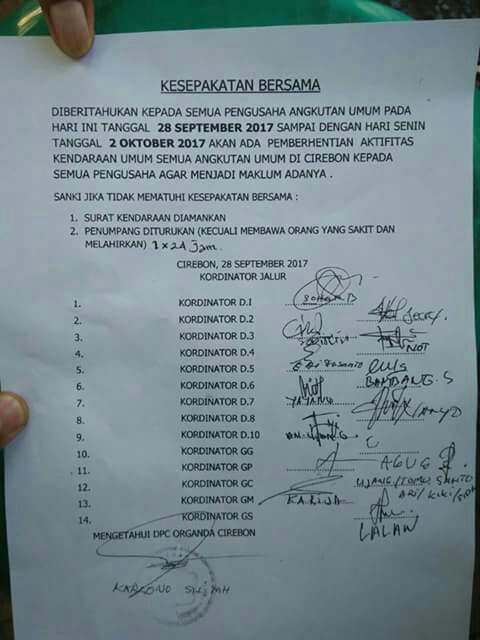 KESEPAKATAN BERSAMA
DIBERITAHUKAN KEPADA SEMUA PENGUSAHA ANGKUTAN UMUM PADA
HARI INI TANGGAL 28 SEPTEMBER 2017 SAMPAI DENGAN HARI SENIN
TANGGAL 2 OKTOBER 2017 AKAN ADA PEMBERHENTIAN AKTIFITAS
KENDARAAN UMUM SEMUA ANGKUTAN UMUM DI CIREBON KEPADA
SEMUA PENGUSAHA AGAR MENJADI MAKLUM ADANYA .
SANKI JIKA TIDAK MEMATUHI KESEPAKATAN BERSAMA :
1. SURAT KENDARAAN DIAMANKAN
2. PENUMPANG DITURUKAN (KECUALI MEMBAWA ORANG YANG SAKIT DAN
MELAHIRKAN) 1 x 24 Jam.
CIREBON, 28 SEPTEMBER 2017
KORDINATOR JALUR
1. KORDINATOR D.I
2. KORDINATOR D.2
3. KORDINATOR D.3
4. KORDINATOR D.4
NOT
5. KORDINATOR D.5
6. KORDINATOR D.6
BAMBANG. S
7. KORDINATOR D.7
8. KORDINATOR D.8
9. KORDINATOR D.10
10. KORDINATOR GG
11. KORDINATOR GP
AGUS
12. KORDINATOR GC
13. KORDINATOR GM
14. KORDINATOR GS
LALAN
MENGETAHUI DPC ORGANDA CIREBON